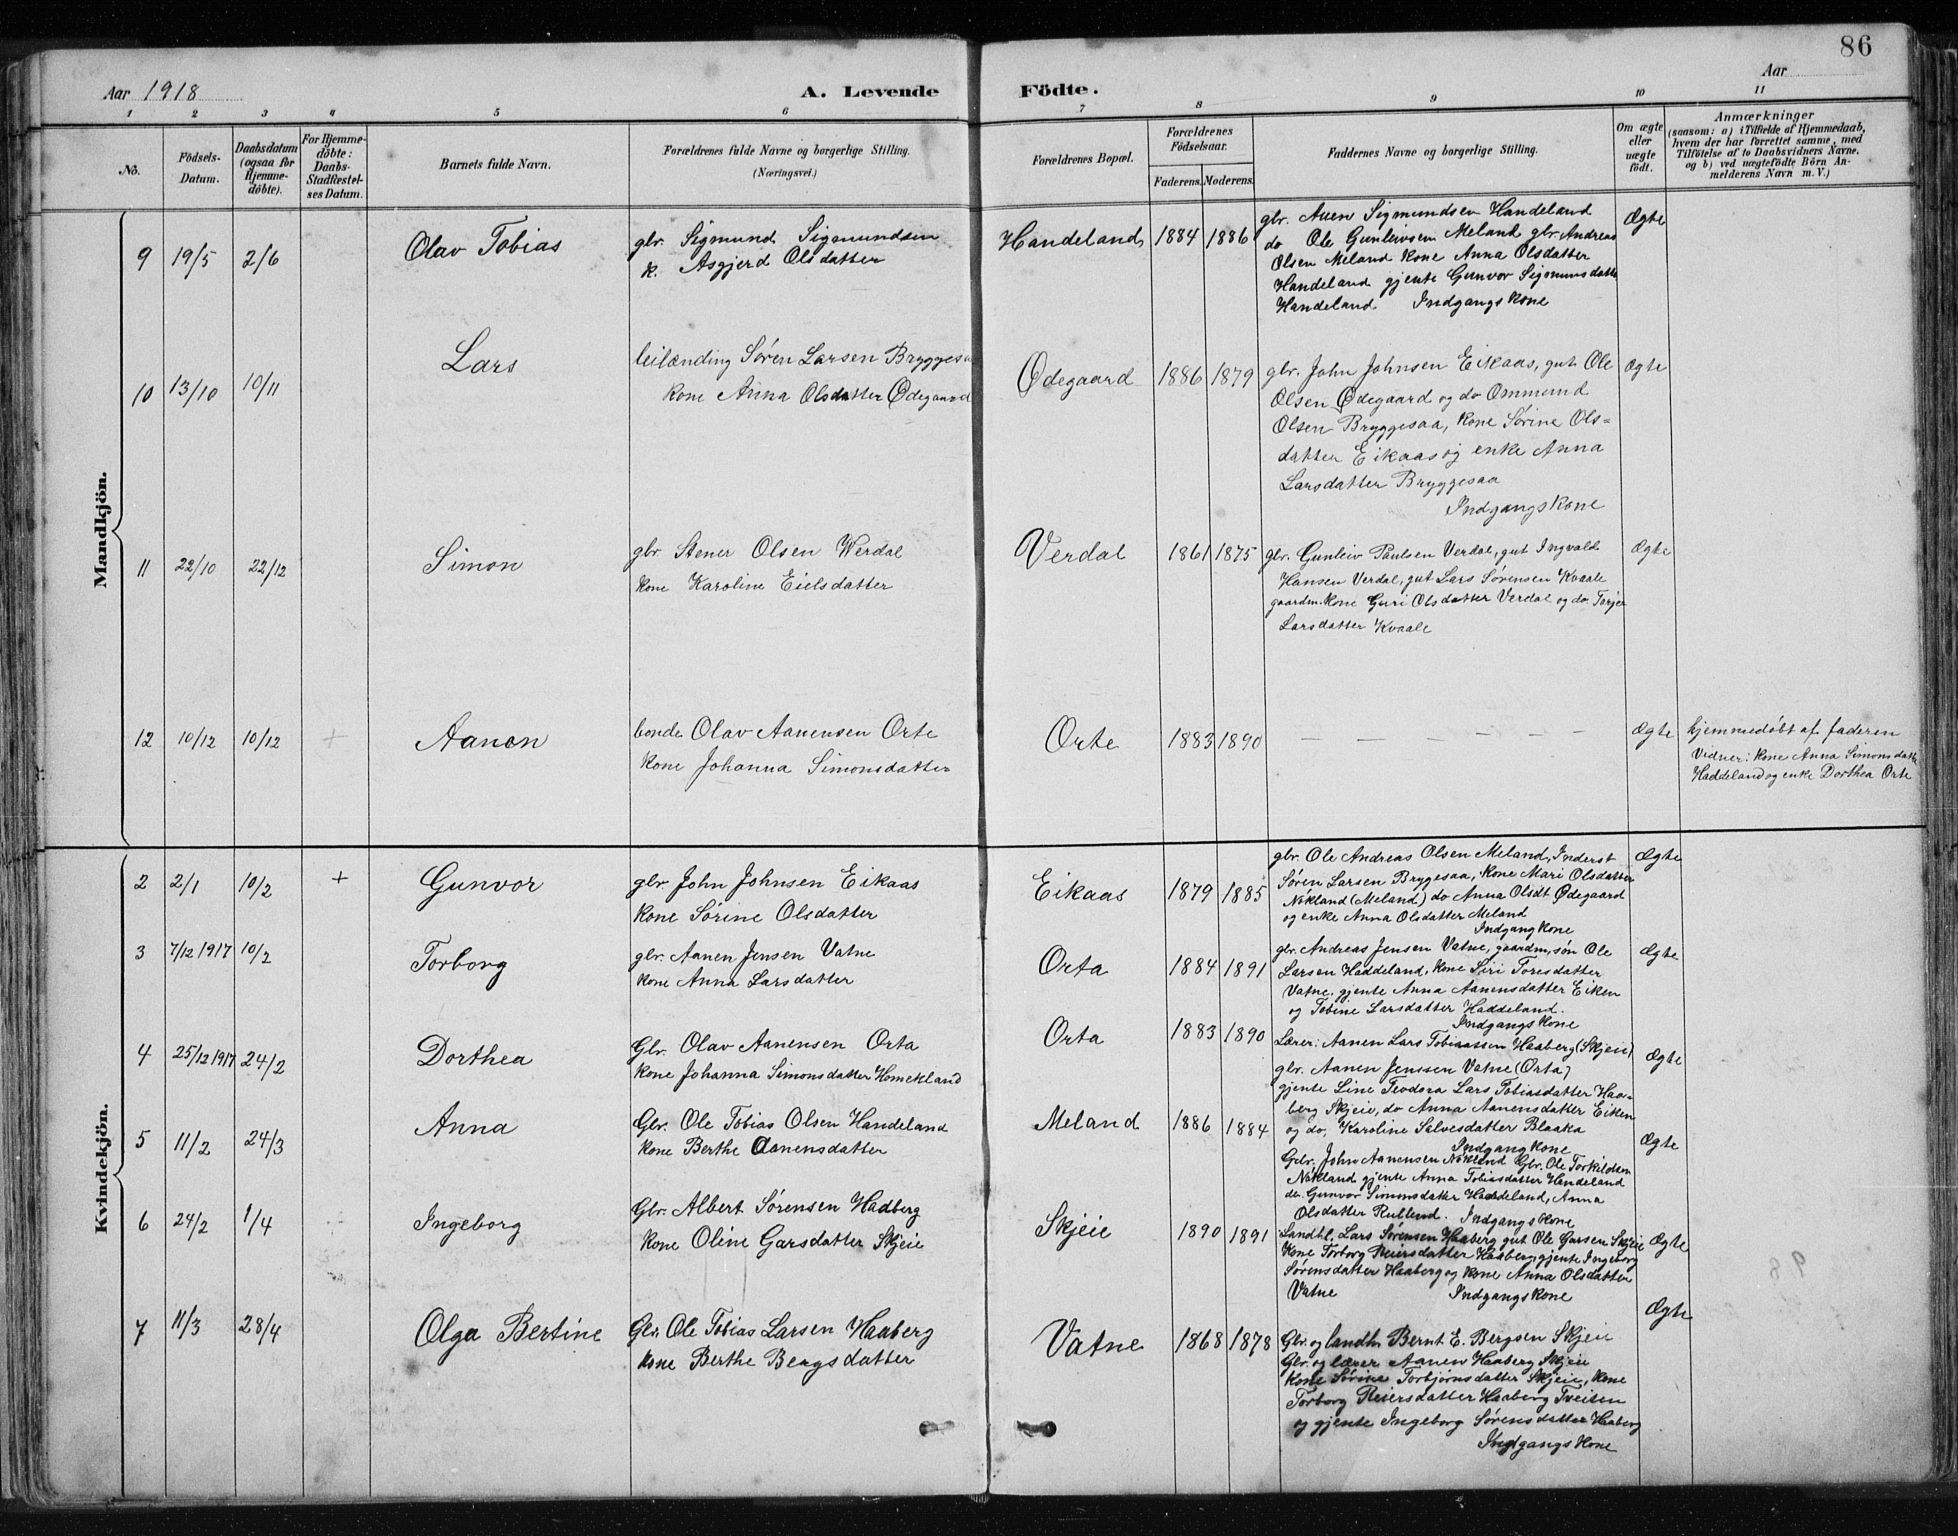 86
Aar 1918
A. Levende
Födte.
Aar
1 2 3 4 5 6 7 8 9 10 11
No.
Födsels-
Datum.
Daabsdatum
(ogsaa for
Hjemme-
döbte).
For Hjemme-
döbte:
Daabs-
Stadfæstel-
ses Datum.
Barnets fulde Navn.
Forældrenes fulde Navne og borgerlige Stilling.
(Næringsvei.)
Forældrenes Bopæl.
Forældrenes
Födselsaar.
Faderens. Moderens.
Faddernes Navne og borgerlige Stilling.
Om ægte
eller
uægte
födt.
Anmærkninger
(saasom: a) i Tilfælde af Hjemmedaab,
hvem der har forrettet samme, med
Tilföielse af to Daabsvidners Navne,
og b) ved uægtefödte Börn An-
melderens Navn m. V.)
Mandkjön.
9 19/5 2/6 Olav Tobias
glr. Sigmund Sigmundsen
k. Asgjerd Olsdatter
Handeland 1884 1886
glr. Auen Sigmundsen Handeland
do Ole Gunleivsen Meland glr. Andreas
Olsen Meland Kone Anna Olsdatter
Handeland gjente Gunvor Sigmunsdatte
Handeland. Indgangskone
Ægte
10 13/10 10/11 Lars
leilænding Søren Larsen Bryggesa
kone Anna Olsdatter Ødegaard
Ødegaard 1886 1879
glr. John Johnsen Eikaas, gut Ole
Olsen Ødegaard og do Ommund
Olsen Bryggesaa, kone Sørine Ols=
datter Eikaas og enke Anna
Larsdatter Bryggesaa
Indgangskone
Ægte
11 22/10 22/12 Simon
gbr Stener Olsen Werdal
kone Karoline Eielsdatter
Verdal 1861 1875
glr. Gunleiv Paulsen Verdal, gut Ingvald
Hansen Verdal, gut Lars Sørensen Kvaale
gaardm. kone Guri Olsdatter Verdal og do. Torjer
Larsdatter Kvaale
Ægte
12 10/12 10/12 + Aanen
bonde Olav Aanensen Orte
kone Johanna Simonsdatter
Orte 1883 1890
— — — — — — —
Ægte
hjemmedøbt af faderen
Vidner: kone Anna Simonsdatte
Haddeland og enke Dorthea Orte
Kvindekjön.
2 2/1 10/2 + Gunvor
glr. John Johnsen Eikaas
kone Sørine Olsdatter
Eikaas 1879 1885
glr. Ole Andreas Olsen Meland, Inderst
Søren Larsen Brygesaa, kone Mari Olsdatter
Nøkland (Meland) do Anna Olsdt Ødegaard
og enke Anna Olsdatter Meland
Indgangkone
Ægte
3 7/12 1917 10/2 Torborg
glr. Aanen Jensen Vatne
kone Anna Larsdatter
Orta 1884 1891
glr. Andreas Jensen Vatne, gaardm. søn Ole
Larsen Haddeland, kone Siri Toresdatter
Vatne. gjente Anna Aanensdatter Eiken
og Tobine Larsdatter Haddeland.
Indgangskone
Ægte
4 25/12 1917 24/2 Dorthea
Glr. Olav Aanensen Orta
kone Johanna Simonsdatter Homekland
Orta 1883 1890
Lærer: Aanen Lars Tobiassen Haaberg (Skjeie)
glr. Aanen Jenssen Vatne (Orta)
gjente Line Teodora Lars Tobiasdatter Haa-
berg Skjeie, do Anna Aanensdatter Eiken
og do, Karoline Salvesdatter Blaaka
Indgangkone
Ægte
5 11/2 24/3 Anna
Glr. Ole Tobias Olsen Handeland
kone Berthe Aanensdatter
Meland 1886 1884
Gbr. John Aanensen Nøkland Glr. Ole Torkildsen
Nøkland gjente Anna Tobiasdatter Handeland
do. Gunvor Simonsdatter Haddeland, Anna
Olsdatter Indgangskone
Ægte
6 24/2 1/4 Ingeborg
Glr. Albert Sørensen Hadberg
kone Oline Garsdatter Skjeie
Skjeie 1890 1891
Landhl. Lars Sørensen Haaberg gut Ole Garsen Skjeie
Kone Torborg Reiersdatter Haaberg, gjente Ingeborg
Sørensdatter Haaberg og kone Anna Olsdatter
Vatne Indgangskone
Ægte
7 11/3 28/4 Olga Bertine
Glr. Ole Tobias Larsen Haaberg
kone Berthe Bergsdatter
Vatne 1868 1878
Glr. og landh. Bernt E. Bergsen Skjeie
Glr. og lærer Aanen Haaberg Skjeie
kone Sørine Torbjørnsdatter Skjeie, kone
Torborg Reiersdatter Haaberg Tveiten
og gjente Ingeborg Sørensdatter Haaberg
Indgangskone
Ægte